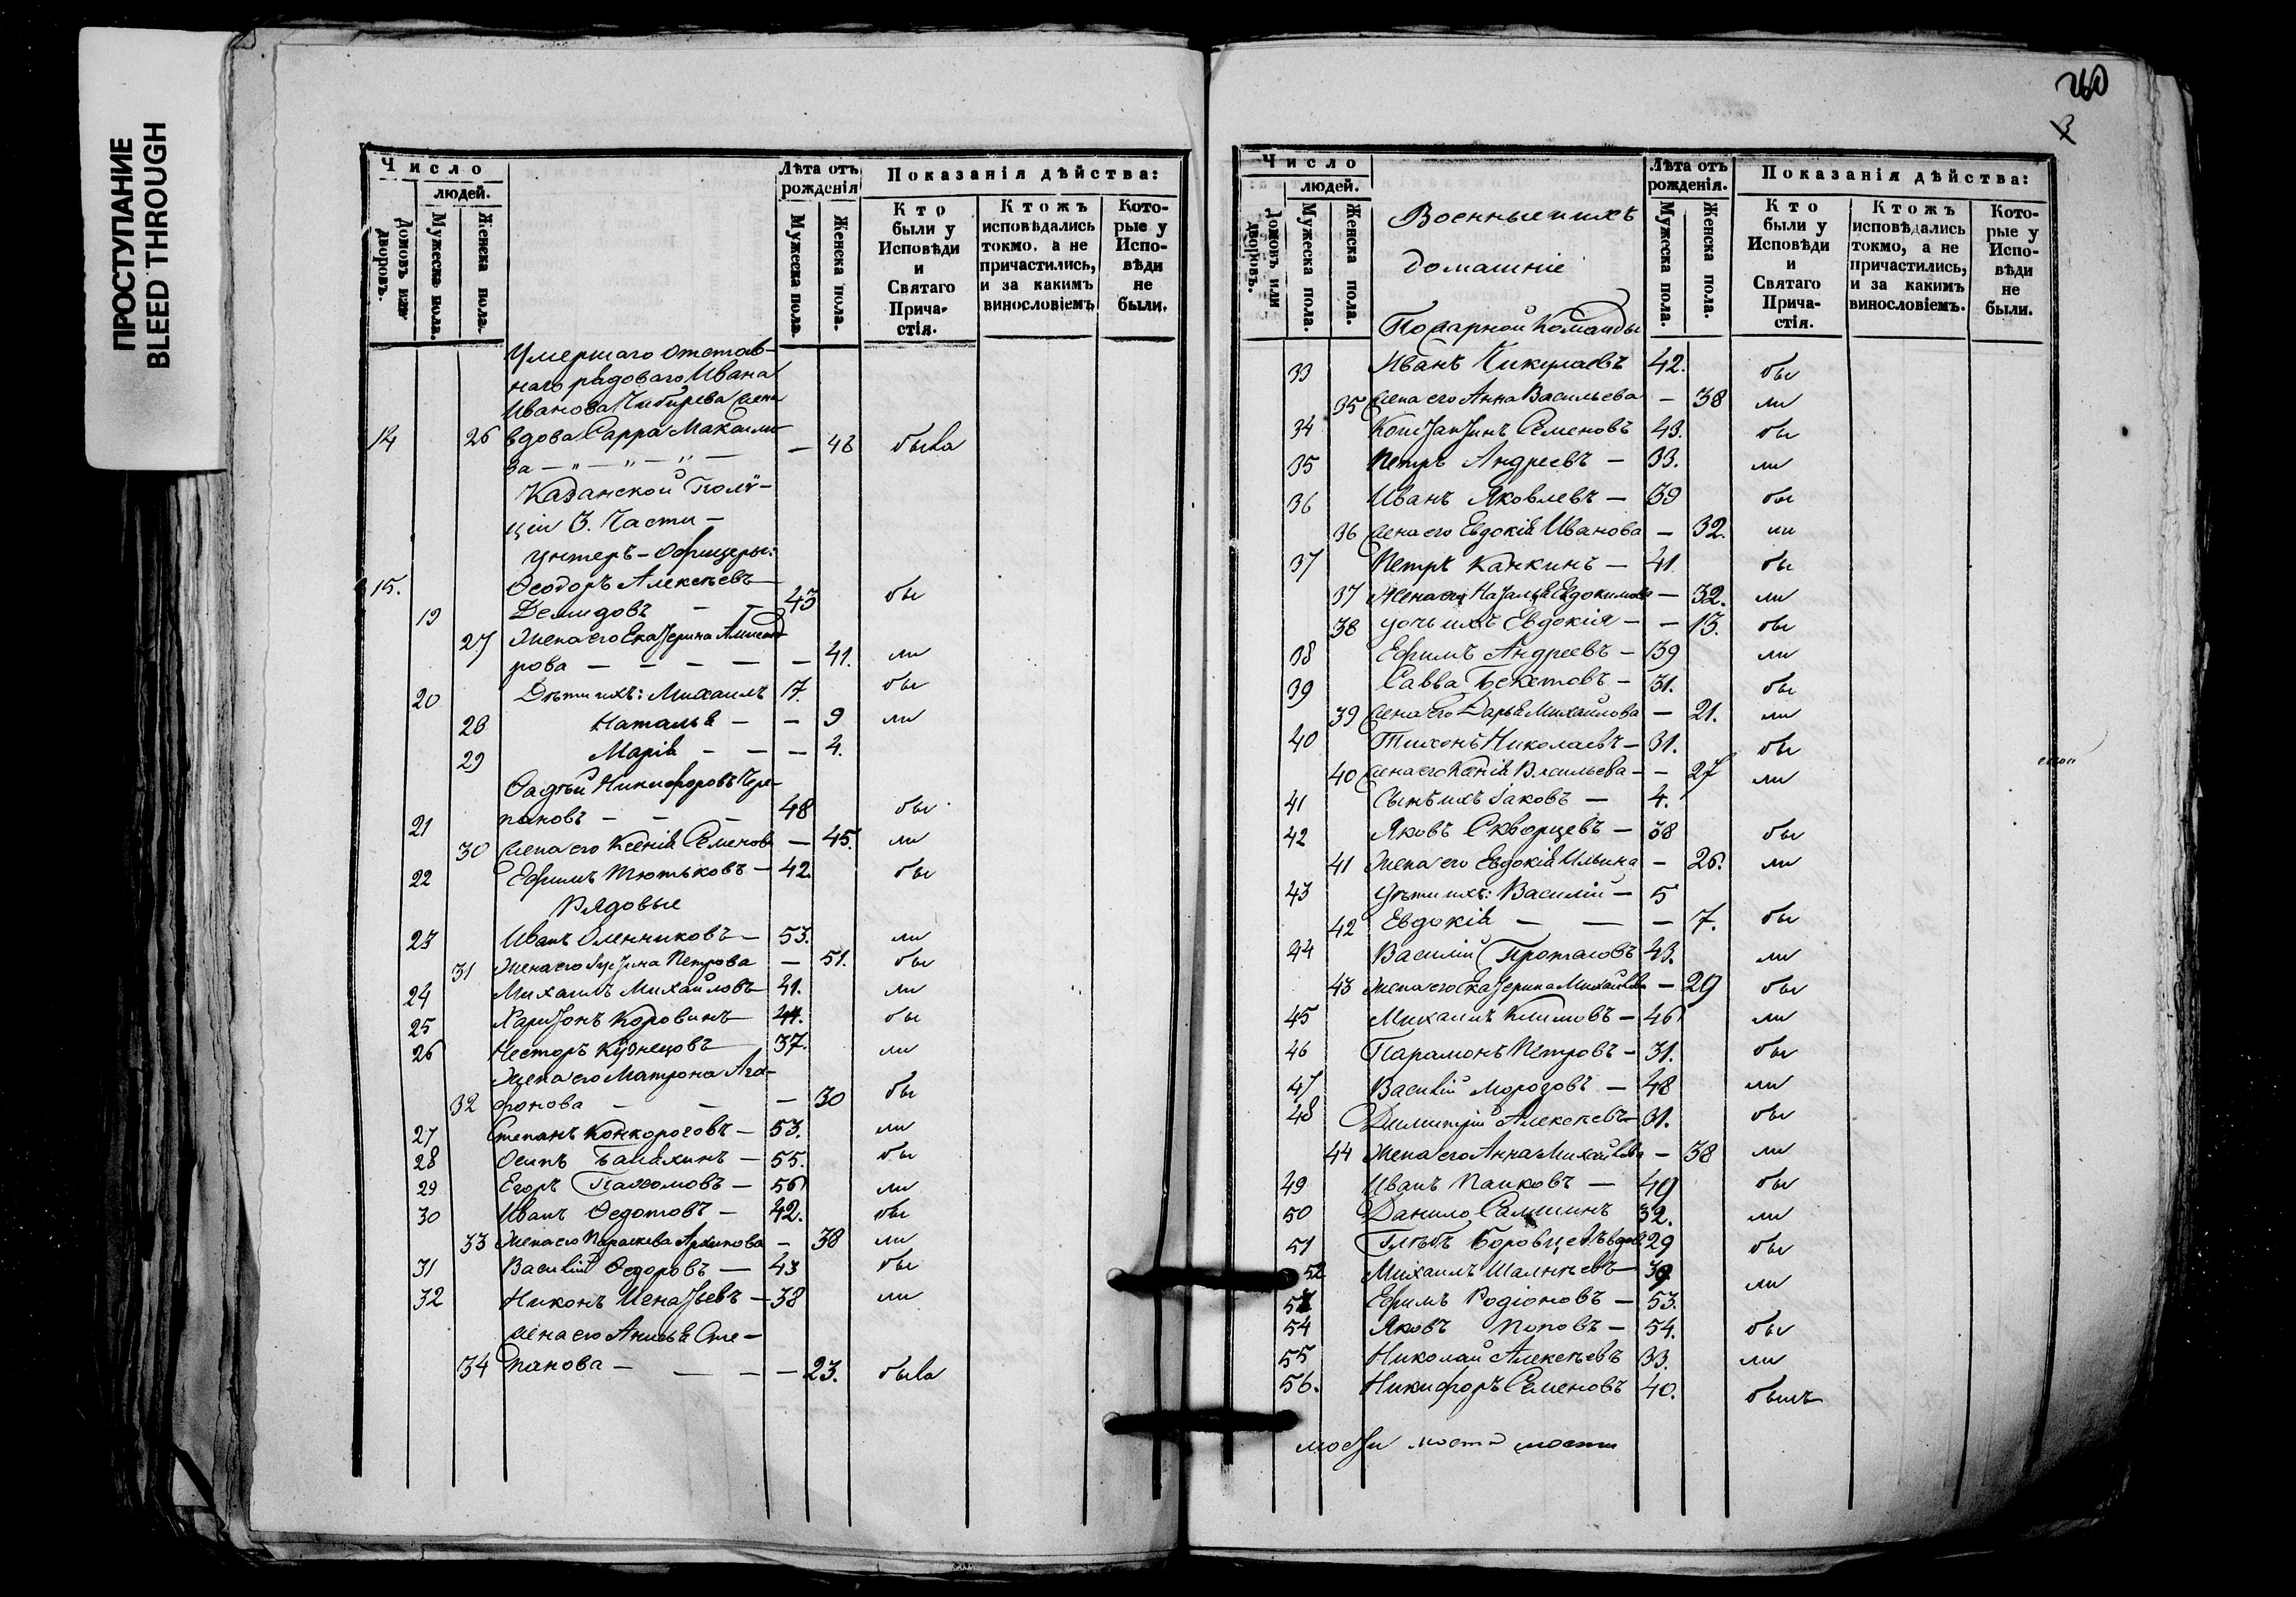 ПРОСТУПАНИЕ
BLEED THROUGH
Число
людей.
Домовъ или дворовъ.
Мужеска пола.
Женска пола.
Лѣта отъ рожденія
Мужеска пола.
Женска пола.
Показанія дѣйства:
Кто были у Исповѣди и Святаго Прича-стія.
Ктожъ исповѣдались токмо, а не причастились, и за какимъ винословіемъ
Кото-рые у Испо-вѣди не были.
Умершаго отстав-
наго рядоваго Ивана
Иванова жена
14 26 вдова Сарра — 48 была
ва — " — " — " —
Казанской Поли-
ціи 3. Части —
Унтеръ-Офицеры:
15. Ѳеодоръ Алексѣевъ
19 Демидовъ — — 43 бы
27 Жена его Екатерина Александ-
рова — — — — — 41. ли
20 Дѣти ихъ: Михаилъ 17. бы
28 Наталья — — 9 ли
29 Марія — — — 4.
Ѳадѣй Никифоровъ
21 пановъ — — — 48 бы
30 Жена его Ксенія Семенова — 45. ли
22 Ефимъ Тютьковъ — 42. бы
Рядовые
23 Иванъ Оленчиковъ — 53. ли
31 Жена его Петрова — 51. бы
24 Михаилъ Михайловъ 41. ли
25 Харитонъ Коровинъ 44. бы
26 Несторъ Кузнецовъ 37. ли
Жена его Матрона Ага-
32 фонова — — — 30 бы
27 Степанъ — 53. ли
28 Осипъ Балахинъ — 55. бы
29 Егоръ Пахомовъ — 56 ли
30 Иванъ Ѳедотовъ — 42. бы
33 Жена его Параскева Архипова — 38 ли
31 Василій Ѳедоровъ — 43 бы
32 Никонъ Игнатьевъ — 38 ли
Жена его Анисья Сте-
34 панова — — — — 23. была
260
Число
людей.
Домовъ или дворовъ.
Мужеска пола.
Женска пола.
Военные и ихъ
домашніе
Пожарной Команды
Лѣта отъ рожденія.
Мужеска пола.
Женска пола.
Показанія дѣйства:
Кто были у Исповѣди и Святаго Прича-стія.
Ктожъ исповѣдались токмо, а не причастились, и за какимъ винословіемъ.
Кото-рые у Испо-вѣди не были.
33 Иванъ 42. бы
35 Жена его Анна Васильева — 38 ли
34 Константинъ Семеновъ 43. бы
35 Петръ Андреевъ — 33. ли
36 Иванъ Яковлевъ — 39 бы
36 Жена его Евдокія Иванова — 32. ли
37 Петръ Качкинъ — 41 бы
37 Жена его Наталья Евдокимова — 32. ли
38 Дочь ихъ Евдокія — — 13. бы
38 Ефимъ Андреевъ — 39 ли
39 Савва Бекетовъ — 31. бы
39 Жена его Дарья Михайлова — 21. ли
40 Тихонъ Николаевъ — 31. бы
40 Жена его Ксенія Васильева — — 27 ли
41 Сынъ ихъ Іаковъ — 4.
42 Яковъ Скворцевъ — 38 бы
41 Жена его Евдокія Ильина — 26. ли
43 Дѣти ихъ: Василій — 5
42 Евдокія — — — 7. бы
44 Василій Протасовъ 43. ли
43 Жена его Екатерина Михайлова — 29 бы
45 Михаилъ Климовъ — 46 ли
46 Парамонъ Петровъ — 31. бы
47 Василій Морозовъ — 48 ли
48 Димитрій Алексѣевъ — 31. бы
44 Жена его Анна Михайлова — 38 ли
49 Иванъ Панковъ — 49 бы
50 Данило Самшинъ 32. ли
51 Глѣбъ 29 бы
52 Михаилъ 39 ли
Ефимъ Родіоновъ — 53.
54 Яковъ Поповъ — 54. бы
55 Николай Алексѣевъ 33. ли
56. Никифоръ Семеновъ 40. былъ